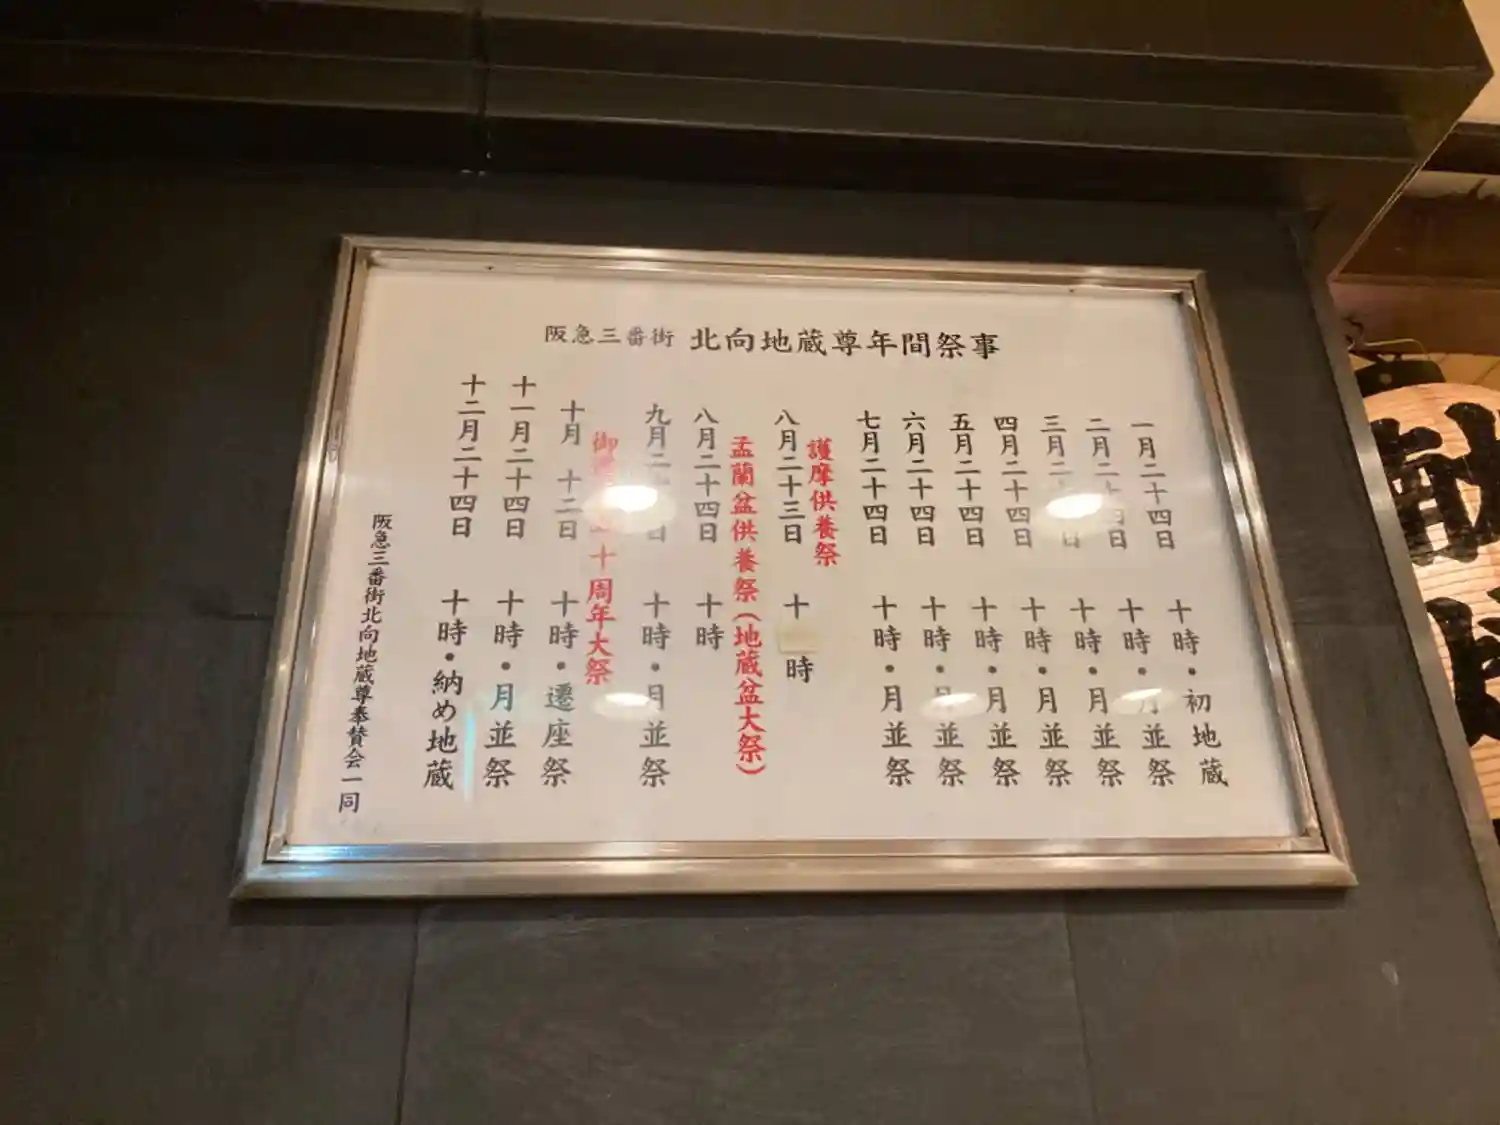 阪急三番街 北向地蔵尊年間祭事
一月二十四日 十時・初地蔵
二月二十四日 十時・月並祭
三月二 日 十時・月並祭
四月二十四日 十時・月並祭
五月二十四日 十時・月並祭
六月二十四日 十時・月並祭
七月二十四日 十時・月並祭
護摩供養祭
八月二十三日 十 時
孟蘭盆供養祭(地蔵盆大祭)
八月二十四日 十時
九月二 日 十時・月並祭
御 十周年大祭
十月 十二日 十時・遷座祭
十一月二十四日 十時・月並祭
十二月二十四日 十時・納め地蔵
阪急三番街北向地蔵尊奉賛会一同
献